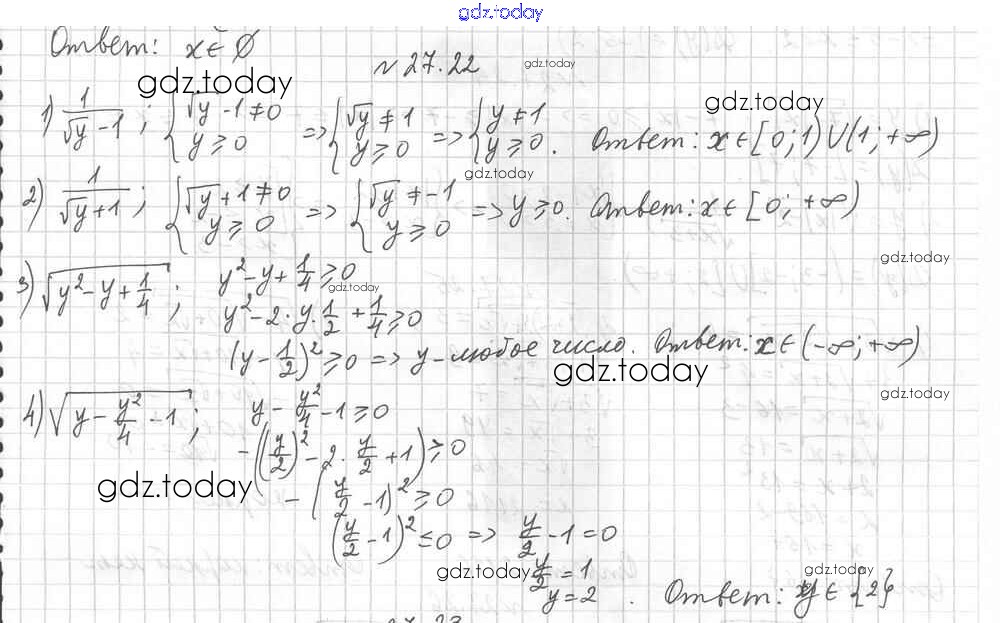 gdz.today
Ответ: x ∈ ∅
gdz.today
№ 27.22
gdz.today
gdz.today
1) 1/(√y - 1); { √y - 1 ≠ 0 y ≥ 0 => { √y ≠ 1 y ≥ 0 => { y ≠ 1 y ≥ 0. Ответ: x ∈ [0; 1) ∪ (1; +∞)
gdz.today
2) 1/(√y + 1); { √y + 1 ≠ 0 y ≥ 0 => { √y ≠ -1 y ≥ 0 => y ≥ 0. Ответ: x ∈ [0; +∞)
gdz.today
3) √(y² - y + 1/4); y² - y + 1/4 ≥ 0
gdz.today
y² - 2 · y · 1/2 + 1/4 ≥ 0
(y - 1/2)² ≥ 0 => y - любое число. Ответ: x ∈ (-∞; +∞)
gdz.today
gdz.today
4) √(y - y²/4 - 1); y - y²/4 - 1 ≥ 0
-((y/2)² - 2 · y/2 + 1) ≥ 0
gdz.today
-(y/2 - 1)² ≥ 0
(y/2 - 1)² ≤ 0 => y/2 - 1 = 0
gdz.today
y/2 = 1
gdz.today
y = 2. Ответ: y ∈ {2}
27.23